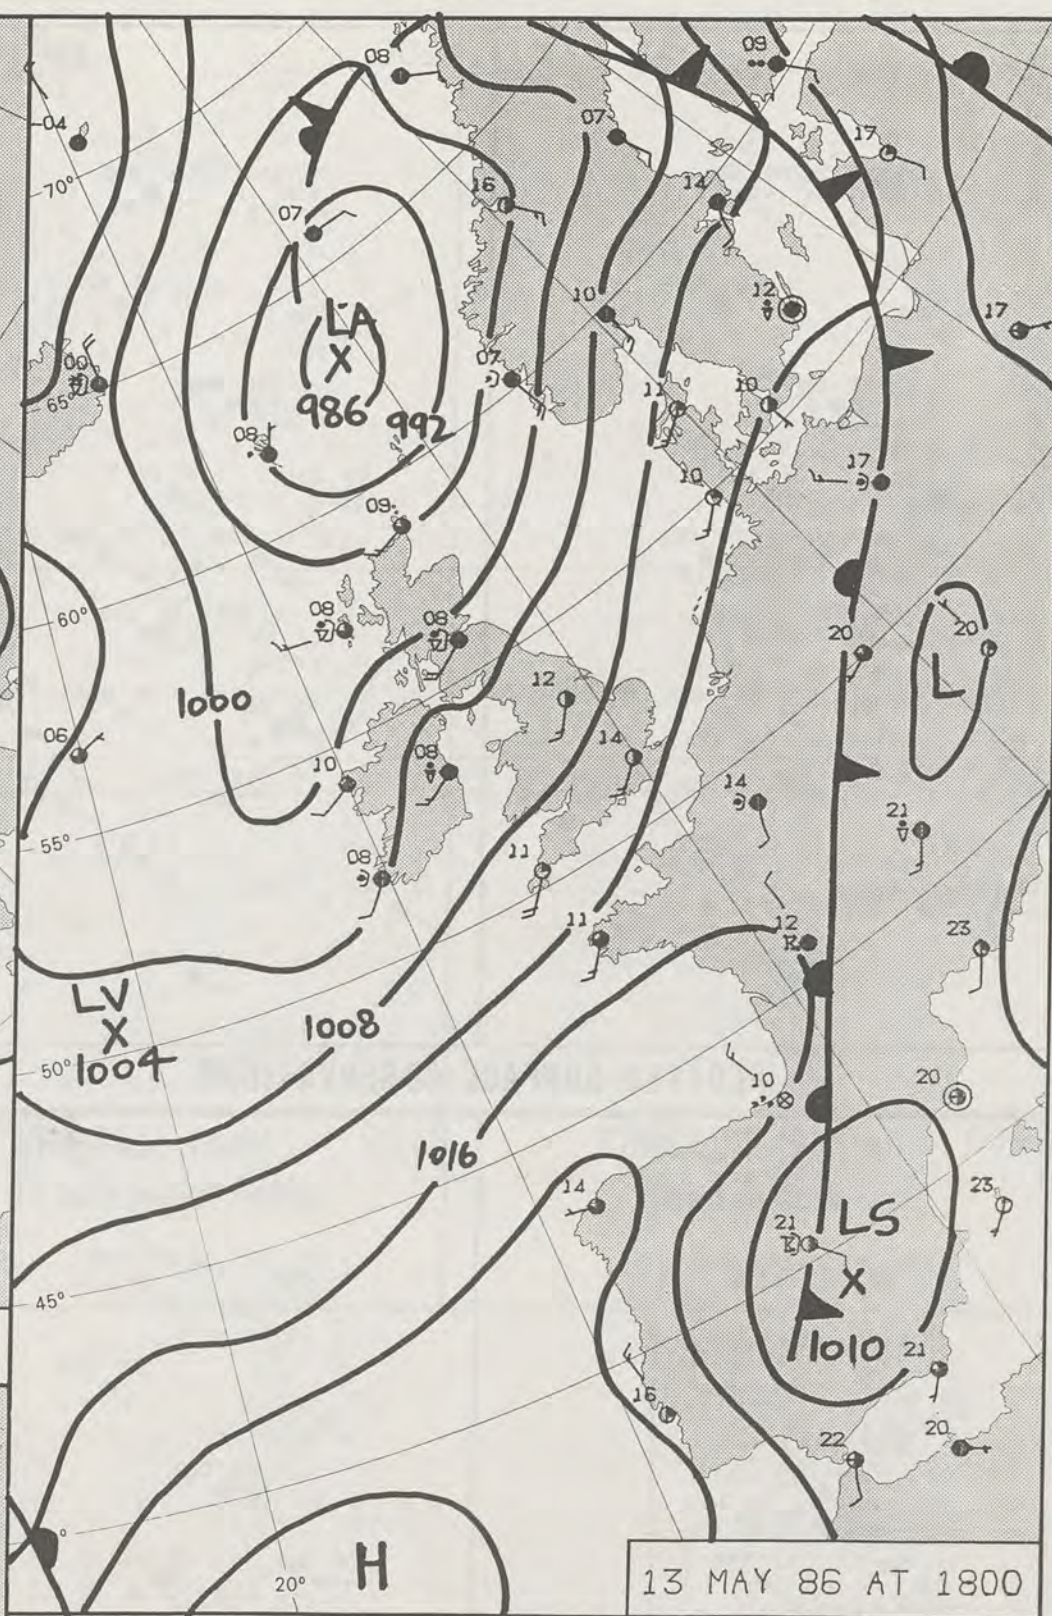 08
09
-04
07
17
70°
16
14
07
10
12
17
LA
X
986
992
00
65°
07
11
10
08
17
10
09
60°
08
08
20
20
L
1000
12
06
08
14
10
14
21
55°
08
11
11
12
23
LV
X
1004
1008
50°
10
20
1016
14
23
21
LS
X
1010
45°
21
16
22
20
H
20°
13 MAY 86 AT 1800